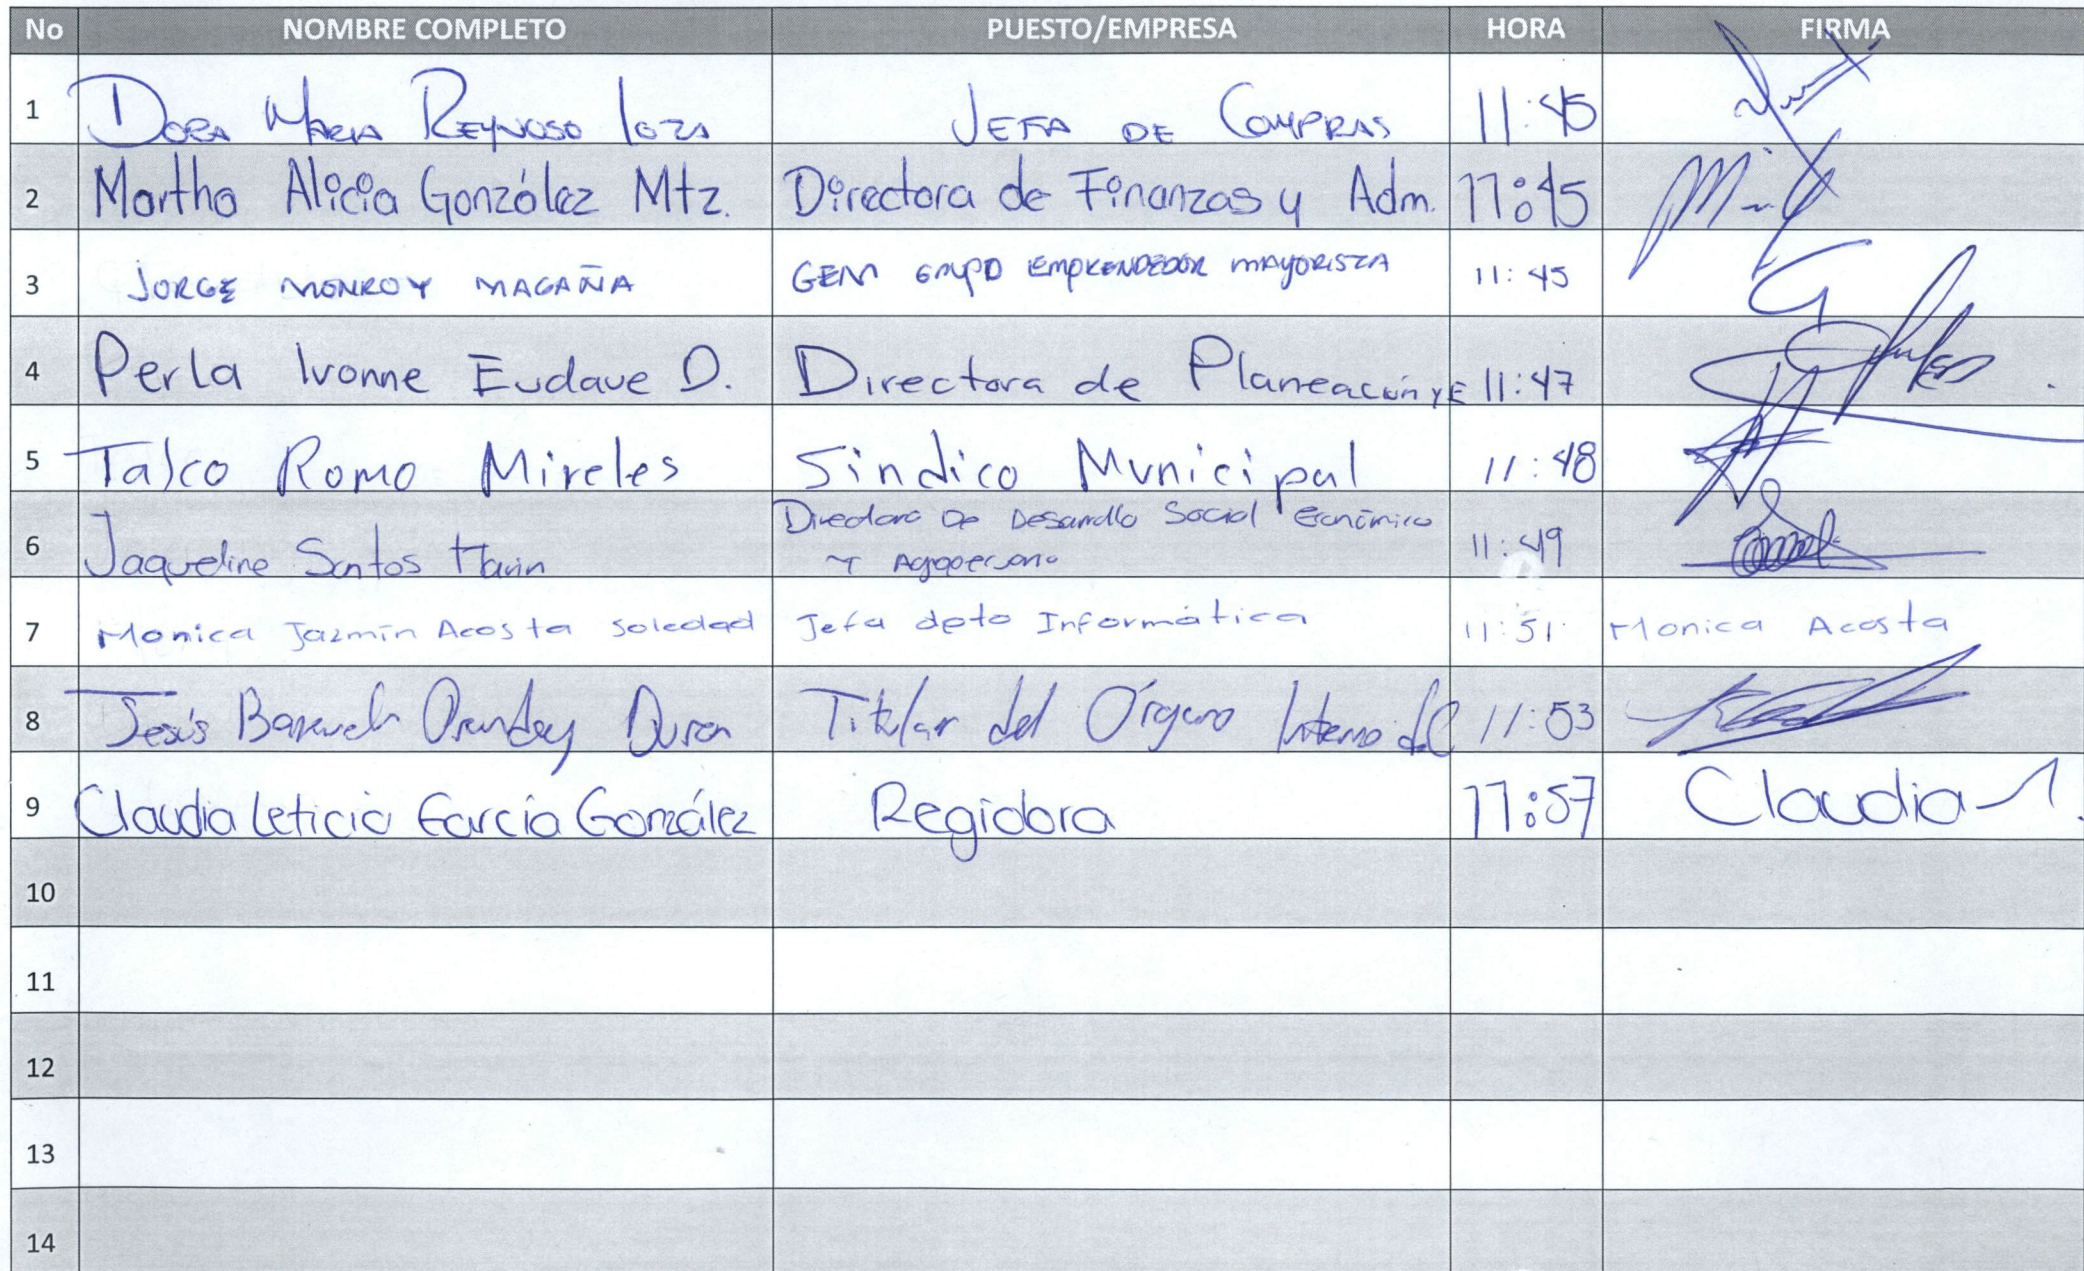 No NOMBRE COMPLETO PUESTO/EMPRESA HORA FIRMA
1 DORA MARIA REYNOSO LOZA JEFA DE COMPRAS 11:45
2 Martha Alicia González Mtz. Directora de Finanzas y Adm. 11:45
3 JORGE MONROY MAGAÑA GEM GRUPO EMPRENDEDOR MAYORISTA 11:45
4 Perla Ivonne Eudave D. Directora de Planeación y E 11:47
5 Talco Romo Mireles Sindico Municipal 11:48
Directora De Desarrollo Social Económico
6 Jaqueline Santos Marin 11:49
Y Agropecuario
7 Monica Jazmín Acosta Soledad Jefa depto Informática 11:51 Monica Acosta
8 Jesús Duron Titular del Órgano Interno del C 11:53
9 Claudia Leticia García González Regidora 11:57 Claudia
10
11
12
13
14